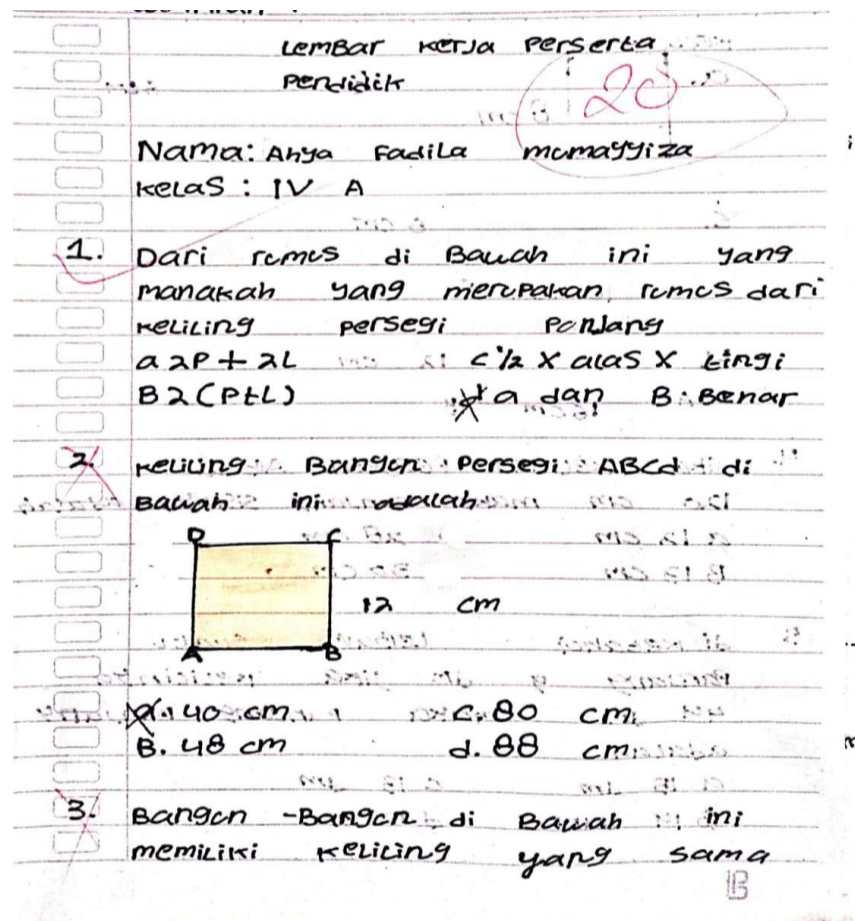 Lembar Kerja Perserta
Pendidik
20
Nama: Ahya Fadila mumayyiza
Kelas : IV A
1. Dari rumus di Bawah ini yang
manakah yang merupakan rumus dari
keliling persegi Panjang
a 2P + 2L c 1/2 X alas X tingi
B 2(P+L) d a dan B Benar
2. Keliling Bangun Persegi ABCd di
Bawah ini adalah
D C
12 cm
A B
a. 40 cm c. 80 cm
B. 48 cm d. 88 cm
3. Bangun -Bangun di Bawah ini
memiliki keliling yang sama